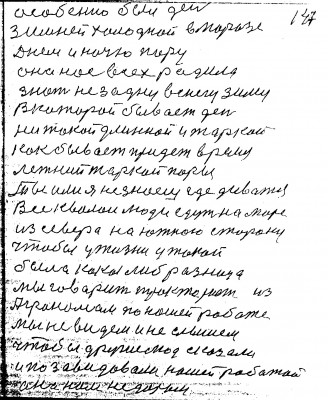 особенно был ден
147
зимней холодной в морозе
Днем и ночю пору
она нас всех радила
знат не задну в снегу зиму
В которой бывает ден
ни такой длинной и жаркой
как бывает придет время
летний жаркой поры
Ты или я не знаем где деватя
Все квалом люди едут на море
из севера на южною сторону
чтобы у жизни у такой
была кака либ разница
мы говарим
из
по нашей работе
мы не видем и не слышем
чтобы другие люд сказали
и позавидовали нашей работой